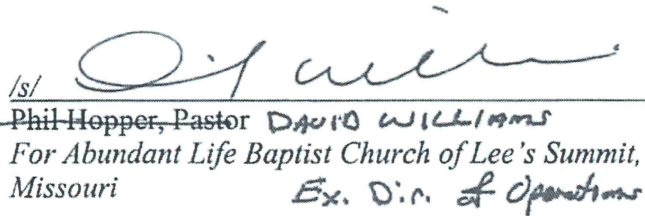 /s/
Phil Hopper, Pastor DAVID WILLIAMS
For Abundant Life Baptist Church of Lee's Summit,
Missouri Ex. Dir. of Operations